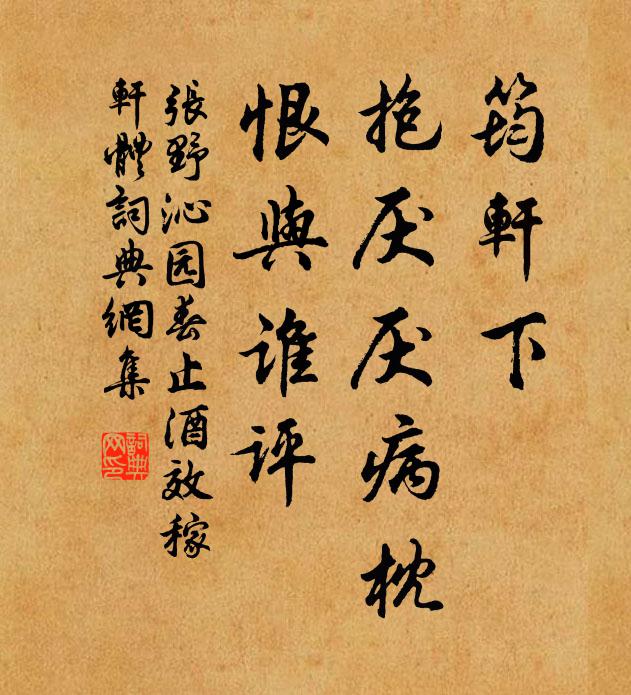 筠軒下
抱厌厌病枕
恨與谁評
張野沁园春止酒效稼
軒體詞典網集
詞典
网印